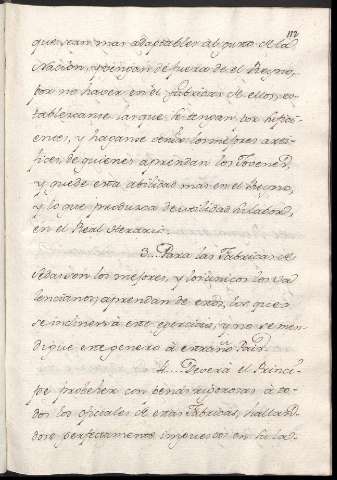 112
que sean mas adaptables al gusto de la
Nacion, y vengan de fuera de el Reyno,
por no haver en él fabricas de ellos, es-
tablezcanse las que se tengan por
y haganse venir los mejores arti-
fices, de quienes aprendan los Jovenes,
y quede esta abilidad mas en el Reyno,
y lo que produzca de utilidad su labor,
en el Real Herario.
3... Para las Fabricas de
sedas son los mejores, y los unicos los Va-
lencianos, aprendan de estos, los que
se inclinen á este exercicio, y no se men-
digue este genero á extraño Pais.
4... Deverá el Princi-
pe proveher con penas rigorosas á to-
dos los oficiales de estas Fabricas, hallan-
dose perfectamente impuestos en su lav-